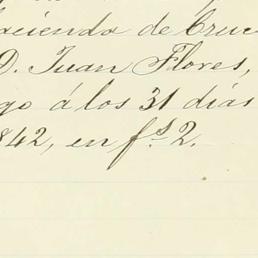 hacienda de Cruc
D. Juan Flores,
go á los 31 dias
842, en fs. 2.